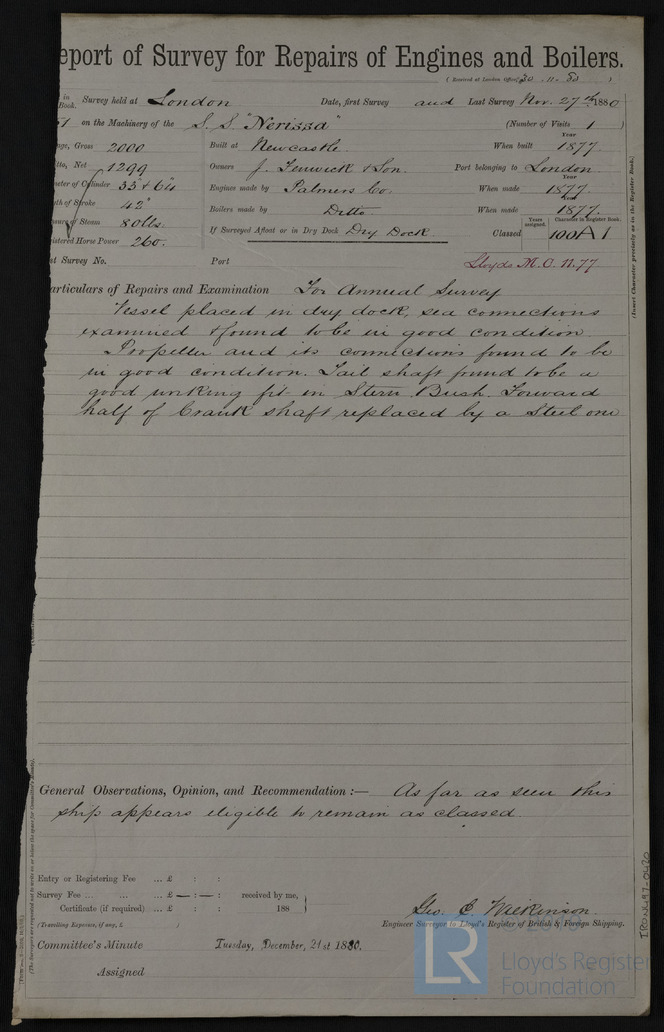 eport of Survey for Repairs of Engines and Boilers.
(Received at London Office 30.11.80)
in Book. Survey held at London Date, first Survey and Last Survey Nov. 27th 1880
51 on the Machinery of the S.S. "Nerissa" (Number of Visits 1 )
age, Gross 2000 Built at Newcastle When built Year 1877
tto, Net 1299 Owners J. Fenwick & Son. Port belonging to London
meter of Cylinder 33 & 64 Engines made by Palmers Co. When made Year 1877.
th of Stroke 42" Boilers made by Ditto. When made Year 1877.
of Steam 80 lbs. If Surveyed Afloat or in Dry Dock Dry Dock Classed Years assigned. 100 Character in Register Book. A1
istered Horse Power 260.
st Survey No. Port Lloyds M.C. 11.77
articulars of Repairs and Examination For Annual Survey
Vessel placed in dry dock, sea connections
examined & found to be in good condition
Propeller and its connections found to be
in good condition. Tail shaft found to be a
good working fit in Stern Bush. Forward
half of Crank shaft replaced by a Steel one
General Observations, Opinion, and Recommendation:— As far as seen this
ship appears eligible to remain as classed
Entry or Registering Fee ... £ : :
Survey Fee ... ... ... £ — : — : received by me,
Certificate (if required) ... £ : : 188
(Travelling Expenses, if any, £ )
Geo. E. Wilkinson.
Engineer Surveyor to Lloyd's Register of British & Foreign Shipping.
Committee's Minute Tuesday, December, 21st 1880.
Assigned
(Insert Character precisely as in the Register Book.)
IRON 497-0420
LR
Lloyd's Register
Foundation